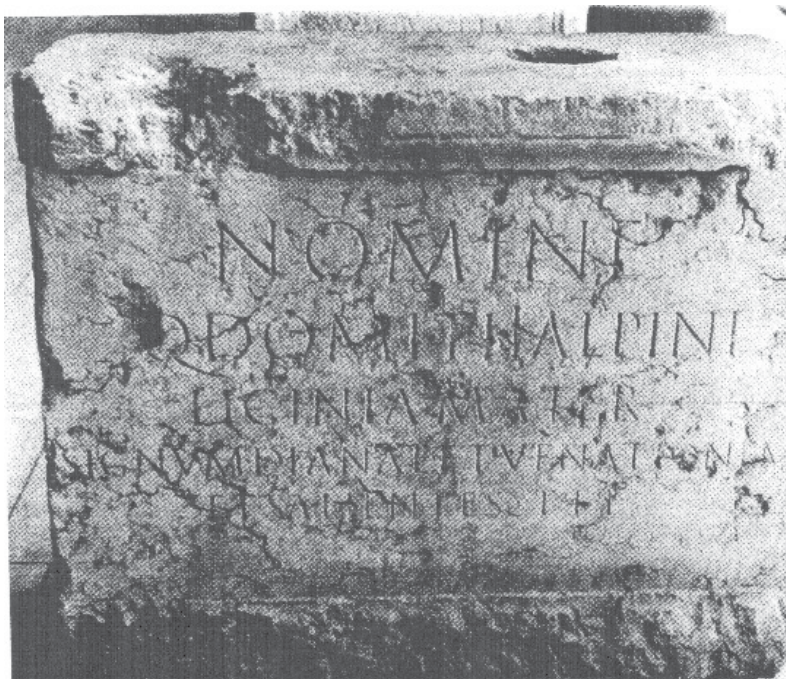 NOMINI
Q DOMITI ALPINI
LICINIA MATER
SIGNVM DIANAE ET
ET SALIENTES T F I